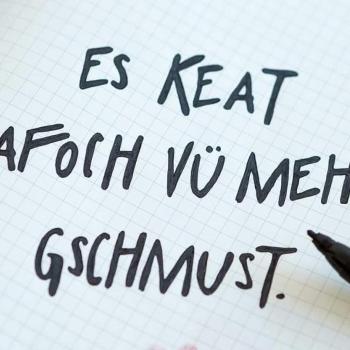 ES KEAT
AFOCH VÜ MEH
GSCHMUST.